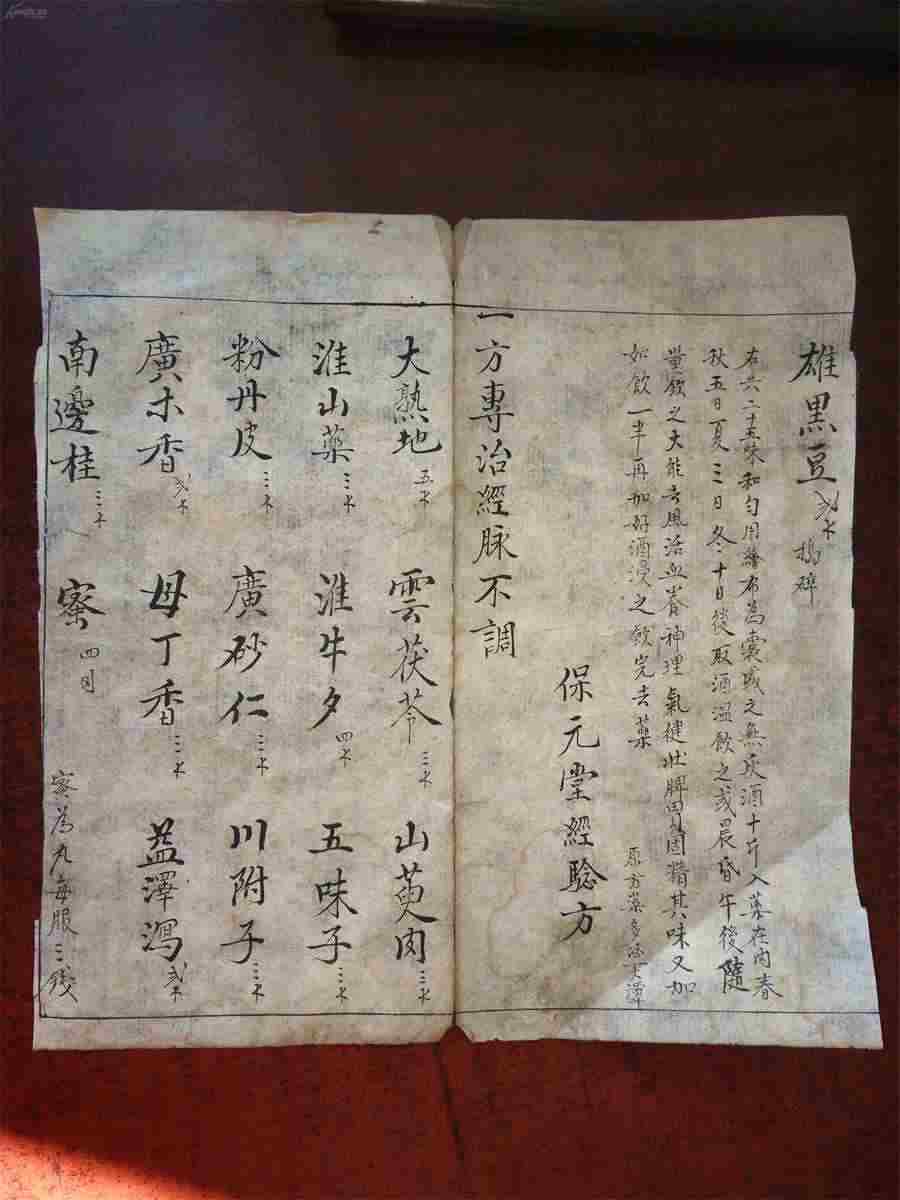 雄黑豆 弍木 搗碎
右六二十五味和勻用絹布為囊盛之無灰酒十斤入藥在內春
秋五日夏三日冬十日後取酒溫飲之或晨昏午後隨
量飲之大能去風活血養神理氣健壯脾胃固精其味又加
如飲一半再加好酒浸之飲完去藥
原方藥多
保元堂經驗方
一方專治經脉不調
大熟地 五木 雲茯苓 三木 山萸肉 三木
淮山藥 三木 淮牛夕 四木 五味子 三木
粉丹皮 三木 廣砂仁 三木 川附子 三木
廣木香 弍木 母丁香 三木 盐澤瀉 弍木
南邊桂 三木 宻 四
宻為丸每服三錢